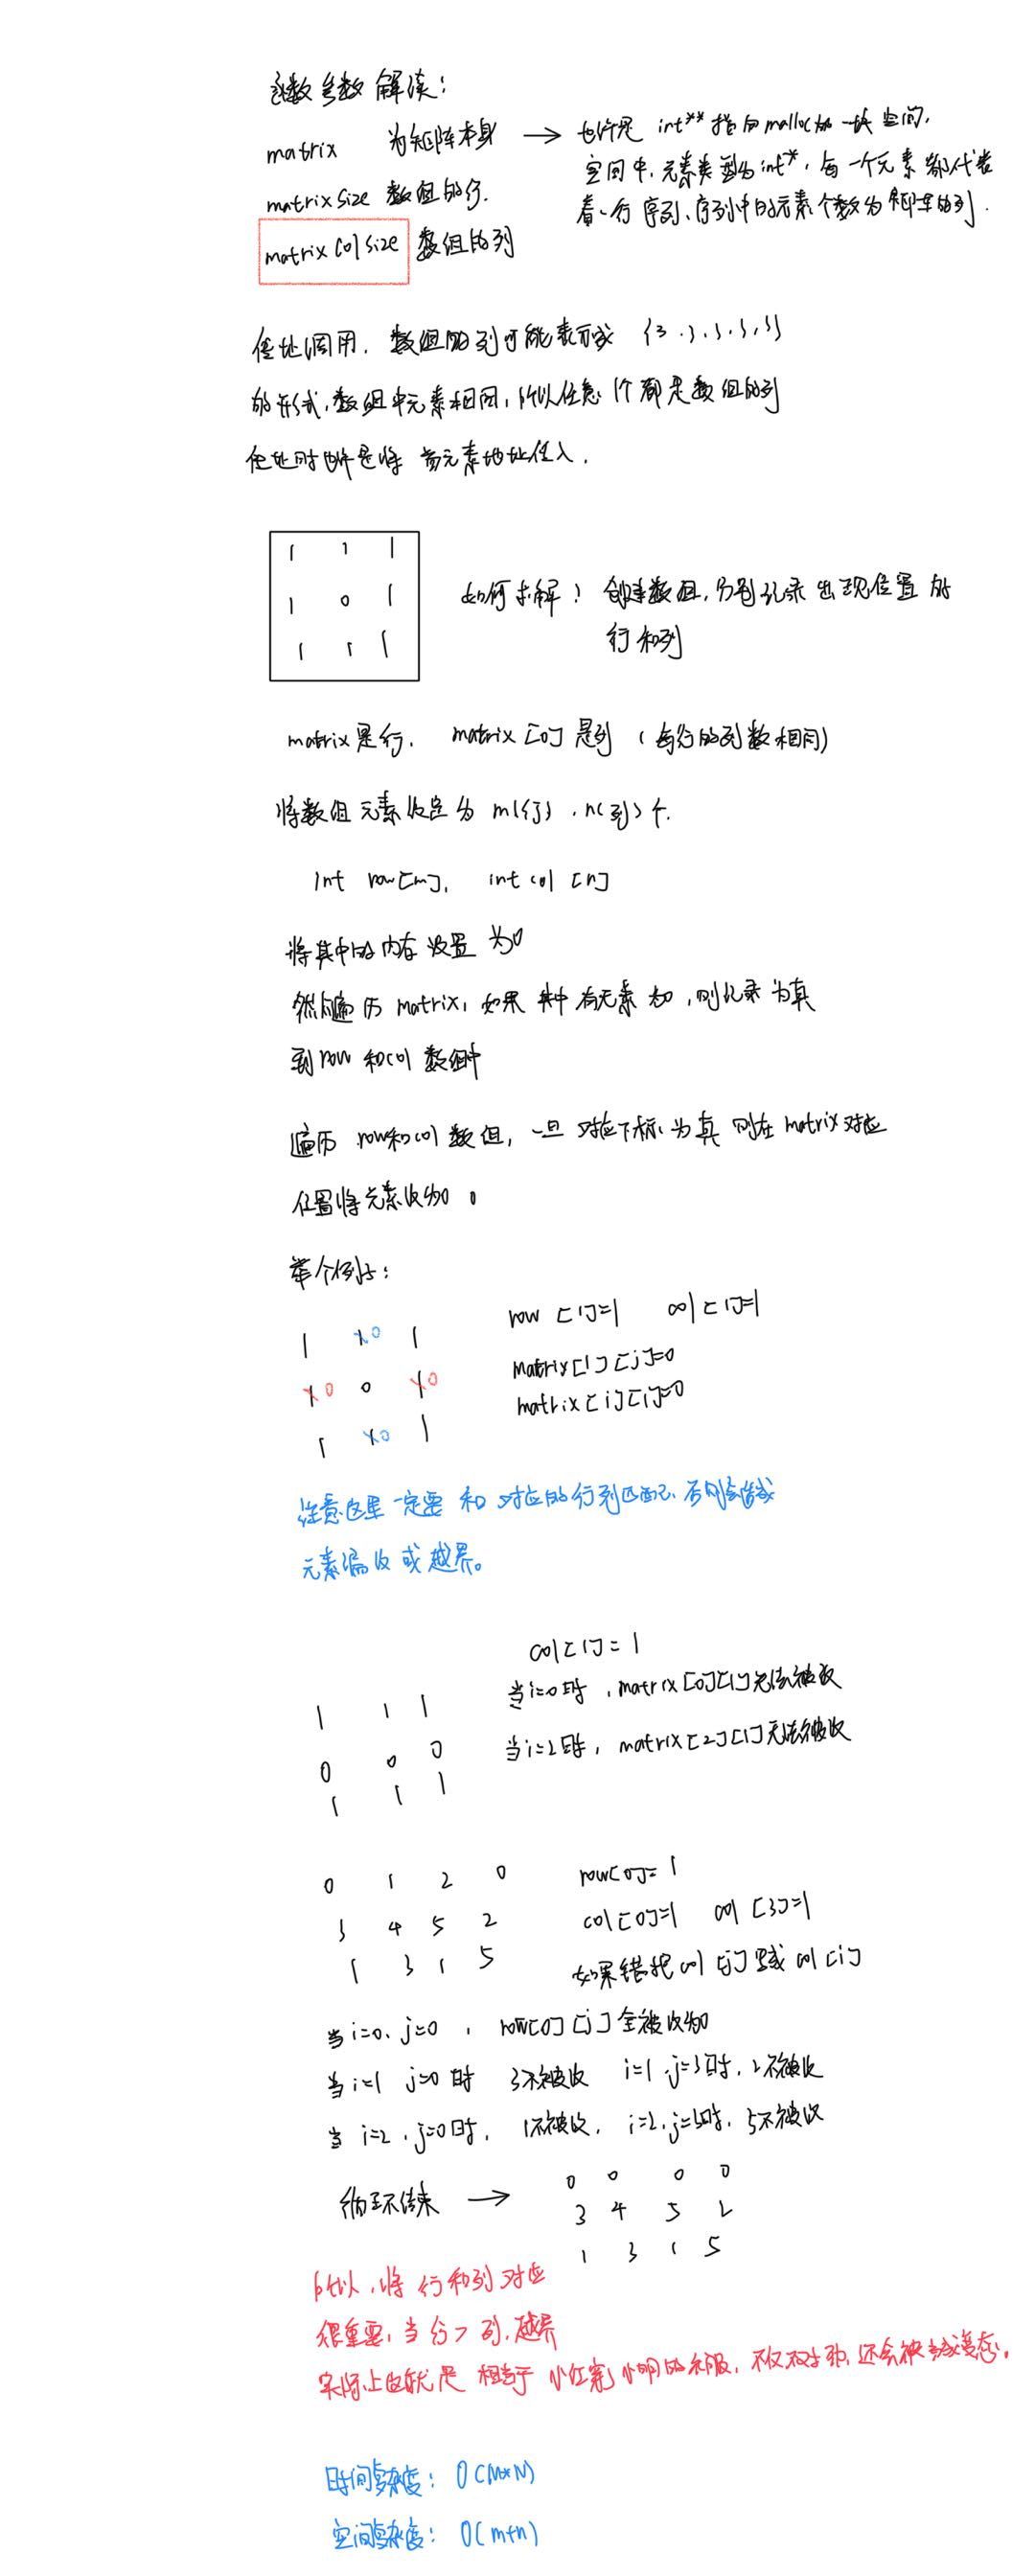 函数参数解读：
matrix 为矩阵本身 → 也许是 int** 指向malloc的一块空间，
空间中，元素类型为int*，每一个元素都代表
着一行序列，序列中的元素个数为矩阵的列.
matrixSize 数组的行.
matrixColSize 数组的列
传址调用，数组的列可能表示成 {3,3,3,3,3}
的形式，数组中元素相同，所以任意1个都是数组的列
传址时也许是将首元素地址传入.
1 1 1
1 0 1
1 1 1
如何求解？ 创建数组，分别记录出现位置的
行和列
matrix是行， matrix[0]是列（每行的列数相同）
将数组元素设定为 m(行)，n(列)个.
int row[m], int col[n]
将其中的内存设置为0
然后遍历 matrix，如果其中有元素为0，则记录为真
到row和col数组中
遍历 row和col数组，一旦对应下标为真 则在matrix对应
位置将元素改为0。
举个例子：
1 1 0 1
1 0 0 1 0
1 1 0 1
row[1]=1 col[1]=1
matrix[1][j]=0
matrix[i][1]=0
注意这里一定要和对应的行列匹配，否则会造成
元素漏改或越界。
col[1]=1
当i=0时，matrix[0][1]无法被改
当i=2时，matrix[2][1]无法被改
1 1 1
0 0 0
1 1 1
0 1 2 0
3 4 5 2
1 3 1 5
row[0]=1
col[0]=1 col[3]=1
如果错把col[j]写成col[i]
当i=0，j=0，row[0][j]全被改为0
当i=1 j=0时 3不被改 i=1，j=3时，2不被改
当i=2，j=0时，1不被改，i=2，j=3时，5不被改
循环结束 →
0 0 0 0
3 4 5 2
1 3 1 5
所以，将行和列对应
很重要，当行>列，越界
实际上也就是相当于小红穿小明的衣服，不仅不对劲，还会被当成变态。
时间复杂度：O(M*N)
空间复杂度：O(m+n)